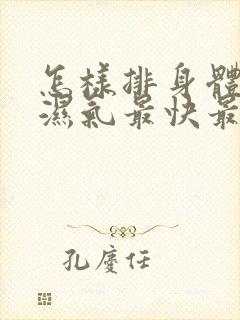 怎樣排身體
濕氣最快最
孔慶任